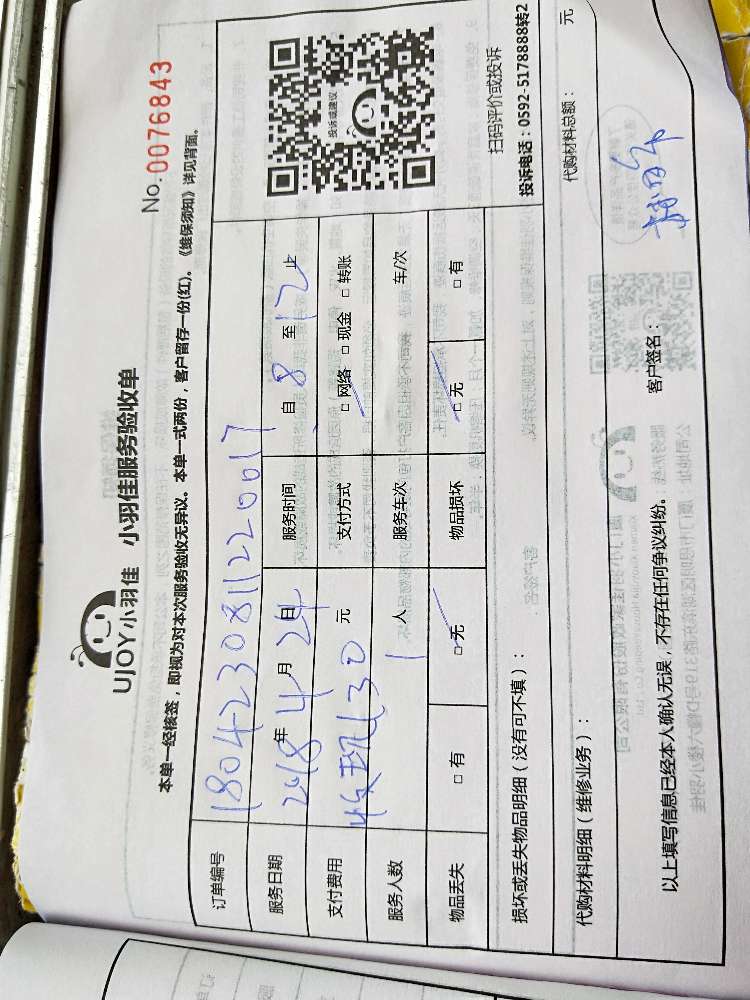 No.0076843
UJOY小羽佳 小羽佳服务验收单
本单一经核签，即视为对本次服务验收无异议。本单一式两份，客户留存一份(红)。《维保须知》详见背面。
订单编号 1804230811220017
服务日期 2018年4月24日 服务时间 自8至12止
支付费用 收现130元 支付方式 □网络 □现金 □转账
服务人数 1人 服务车次 车/次
物品丢失 □有 □无 物品损坏 □无 □有
投诉或建议
扫码评价或投诉
投诉电话：0592-5178888转2
损坏或丢失物品明细（没有可不填）：
代购材料明细（维修业务）： 代购材料总额： 元
以上填写信息已经本人确认无误，不存在任何争议纠纷。 客户签名：